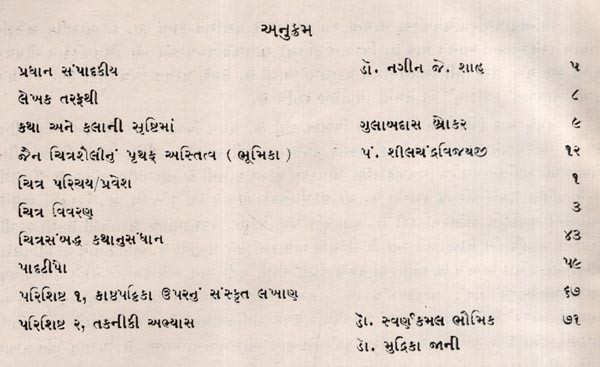 અનુક્રમ
પ્રધાન સંપાદકીય ડૉ. નગીન જે. શાહ ૫
લેખક તરફથી ૮
કથા અને કલાની સૃષ્ટિમાં ગુલાબદાસ બ્રોકર ૯
જૈન ચિત્રશૈલીનું પૃથક્ અસ્તિત્વ ( ભૂમિકા ) પં. શીલચંદ્રવિજયજી ૧૨
ચિત્ર પરિચય/પ્રવેશ ૧
ચિત્ર વિવરણ ૩
ચિત્રસંબદ્ધ કથાનુસંધાન ૪૩
પાદટીપો ૫૯
પરિશિષ્ટ ૧, કાષ્ઠપટ્ટિકા ઉપરનું સંસ્કૃત લખાણ ૬૭
પરિશિષ્ટ ૨, તકનીકી અભ્યાસ ડૉ. સ્વર્ણકમલ ભૌમિક ૭૧
ડૉ. મુદ્રિકા જાની